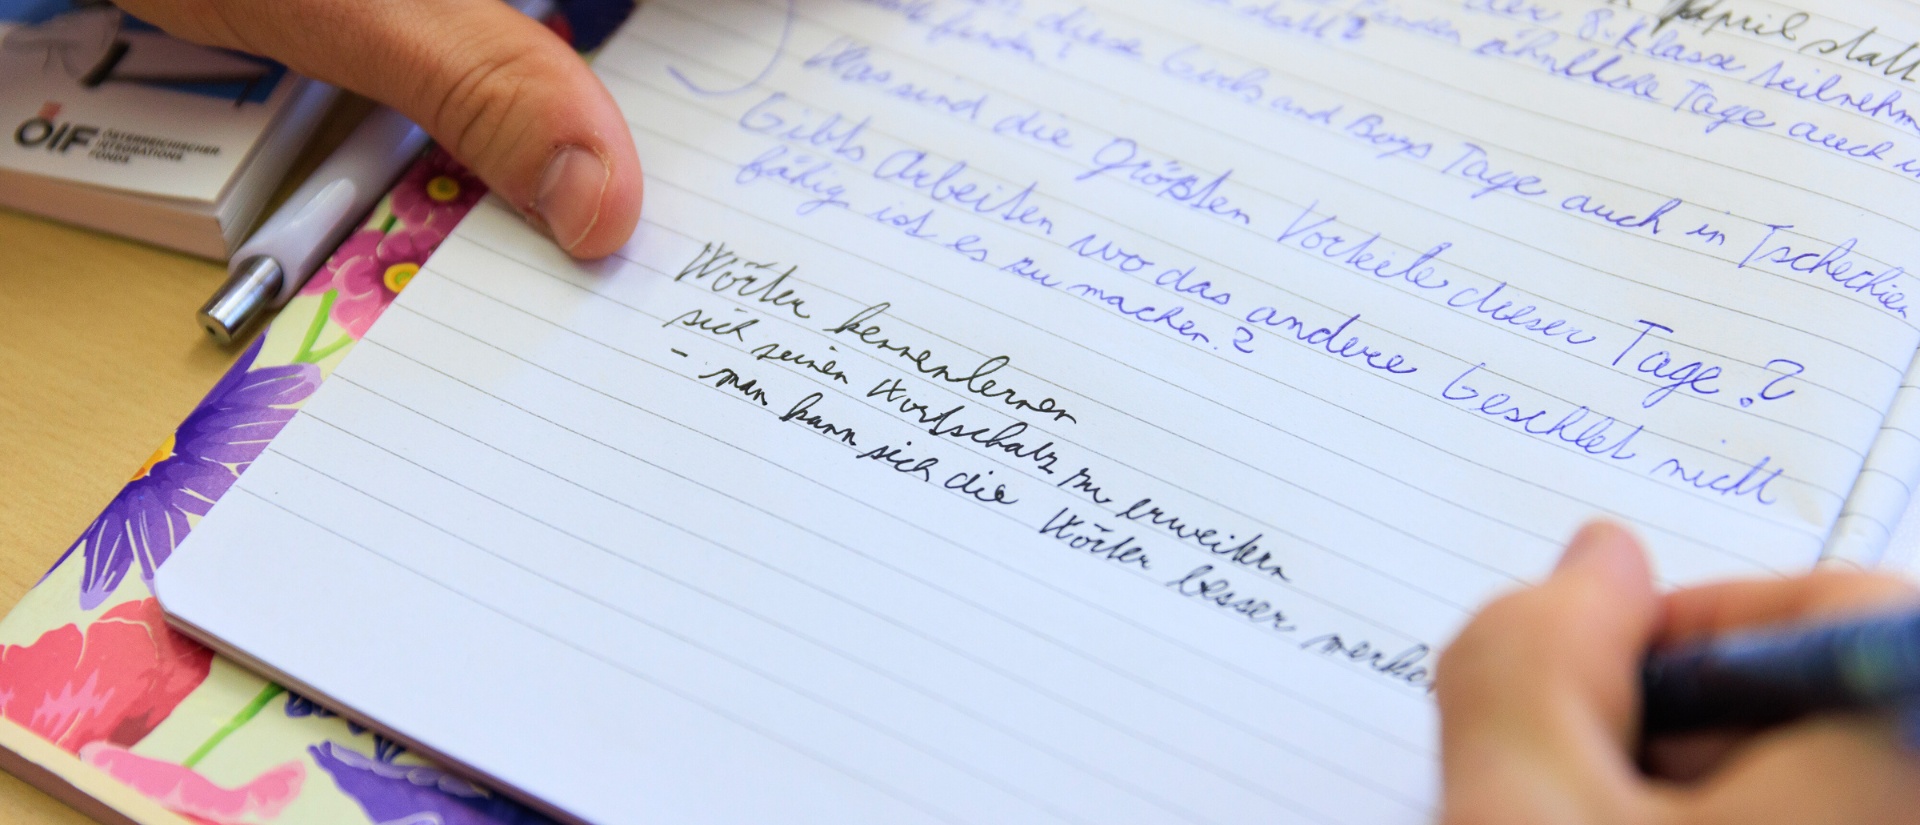 n April statt
der 8. Klasse teilnehm
finden ähnliche Tage auch in
statt?
diese Girls and Boys Tage auch in Tschechien
finden?
Was sind die größten Vorteile dieser Tage?
Gibts Arbeiten wo das andere Geschlet nicht
fähig ist es zu machen?
Wörter kennenlernen
sich seinen Wortschatz zu erweitern
- man kann sich die Wörter besser merken
ÖIF ÖSTERREICHISCHER
INTEGRATIONS
FONDS